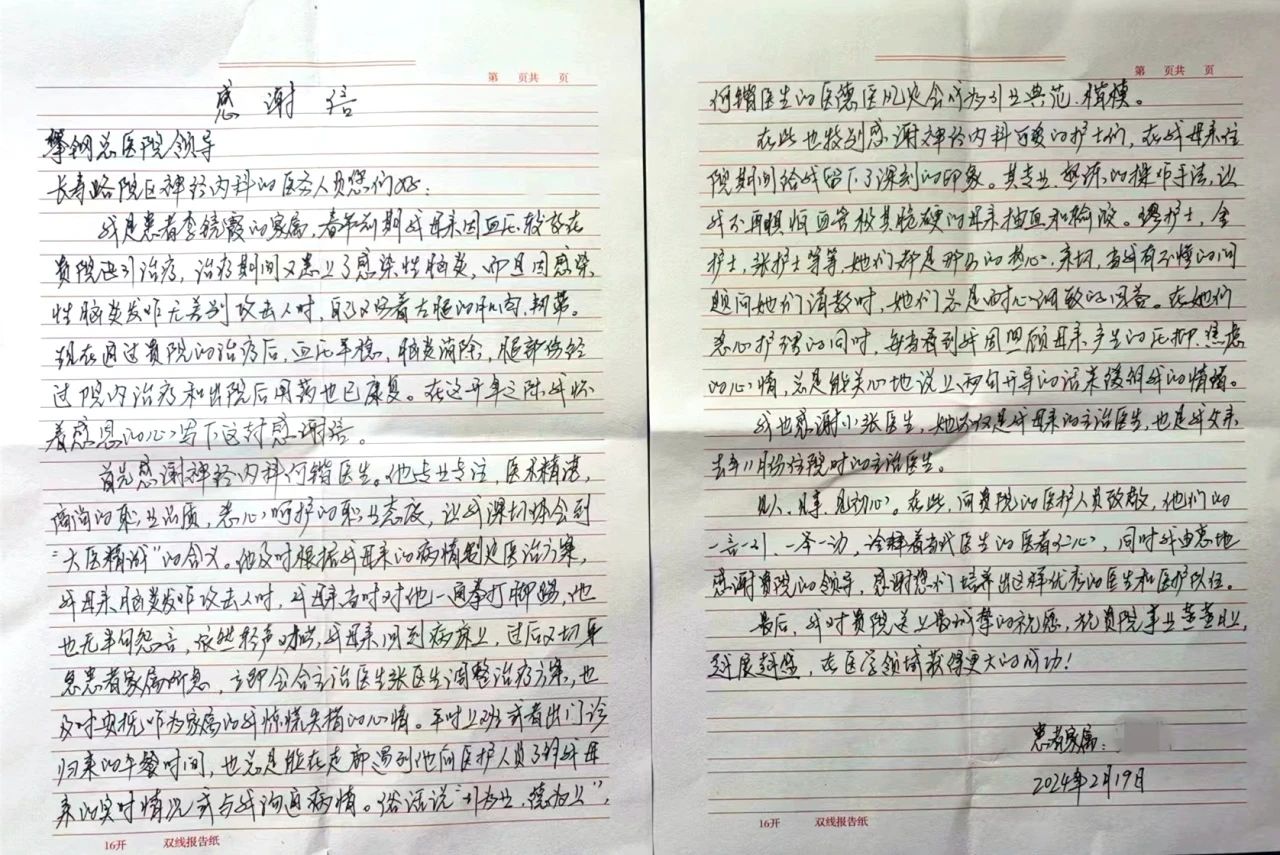 第 页共 页
感谢信
攀钢总医院领导
长寿路院区神经内科的医务人员您们好:
我是患者李锈霞的家属,春节前期我母亲因血压较高在
贵院进行治疗,治疗期间又患上了感染性脑炎,而且因感染
性脑炎发作无差别攻击人时,自己又伤着左腿的肌肉、韧带。
现在通过贵院的治疗后,血压平稳,脑炎消除,腿部伤经
过院内治疗和出院后用药也已康复。在这开年之际我怀
着感恩的心写下这封感谢信。
首先感谢神经内科何锴医生。他专业专注,医术精湛,
高尚的职业品质,悉心呵护的职业态度,让我深切体会到
“大医精诚”的含义。他及时根据我母亲的病情制定医治方案,
我母亲脑炎发作攻击人时,我母亲当时对他一通拳打脚踢,他
也无半句怨言,依然轻声哄我母亲回到病床上,过后又切身
急患者家属所急,立即会合主治医生张医生调整治疗方案,也
及时安抚作为家属的我惊慌失措的心情。平时上班或者出门诊
归来的午餐时间,也总是能在走廊遇到他向医护人员了解我母
亲的实时情况或与我沟通病情。俗话说“行为业,德为上”,
16开 双线报告纸
第 页共 页
何锴医生的医德医风定会成为行业典范、楷模。
在此也特别感谢神经内科可爱的护士们,在我母亲住
院期间给我留下了深刻的印象。其专业、娴熟的操作手法,让
我不再惧怕血管极其脆硬的母亲抽血和输液。缪护士,金
护士,张护士等等,她们都是那么的热心、亲切,当我有不懂的问
题向她们请教时,她们总是耐心细致的回答。在她们
悉心护理的同时,每当看到我因照顾母亲产生的压抑、焦虑
的心情,总是能关心地说上两句开导的话来缓解我的情绪。
我也感谢小张医生,她不仅是我母亲的主治医生,也是我父亲
去年11月份住院时的主治医生。
见人、见事、见初心。在此,向贵院的医护人员致敬,他们的
一言一行、一举一动,诠释着当代医生的医者仁心,同时我由衷地
感谢贵院的领导,感谢您们培养出这样优秀的医生和医护队伍。
最后,我对贵院送上最诚挚的祝愿,祝贵院事业蒸蒸日上,
越展越盛,在医学领域获得更大的成功!
患者家属:
2024年2月19日
16开 双线报告纸